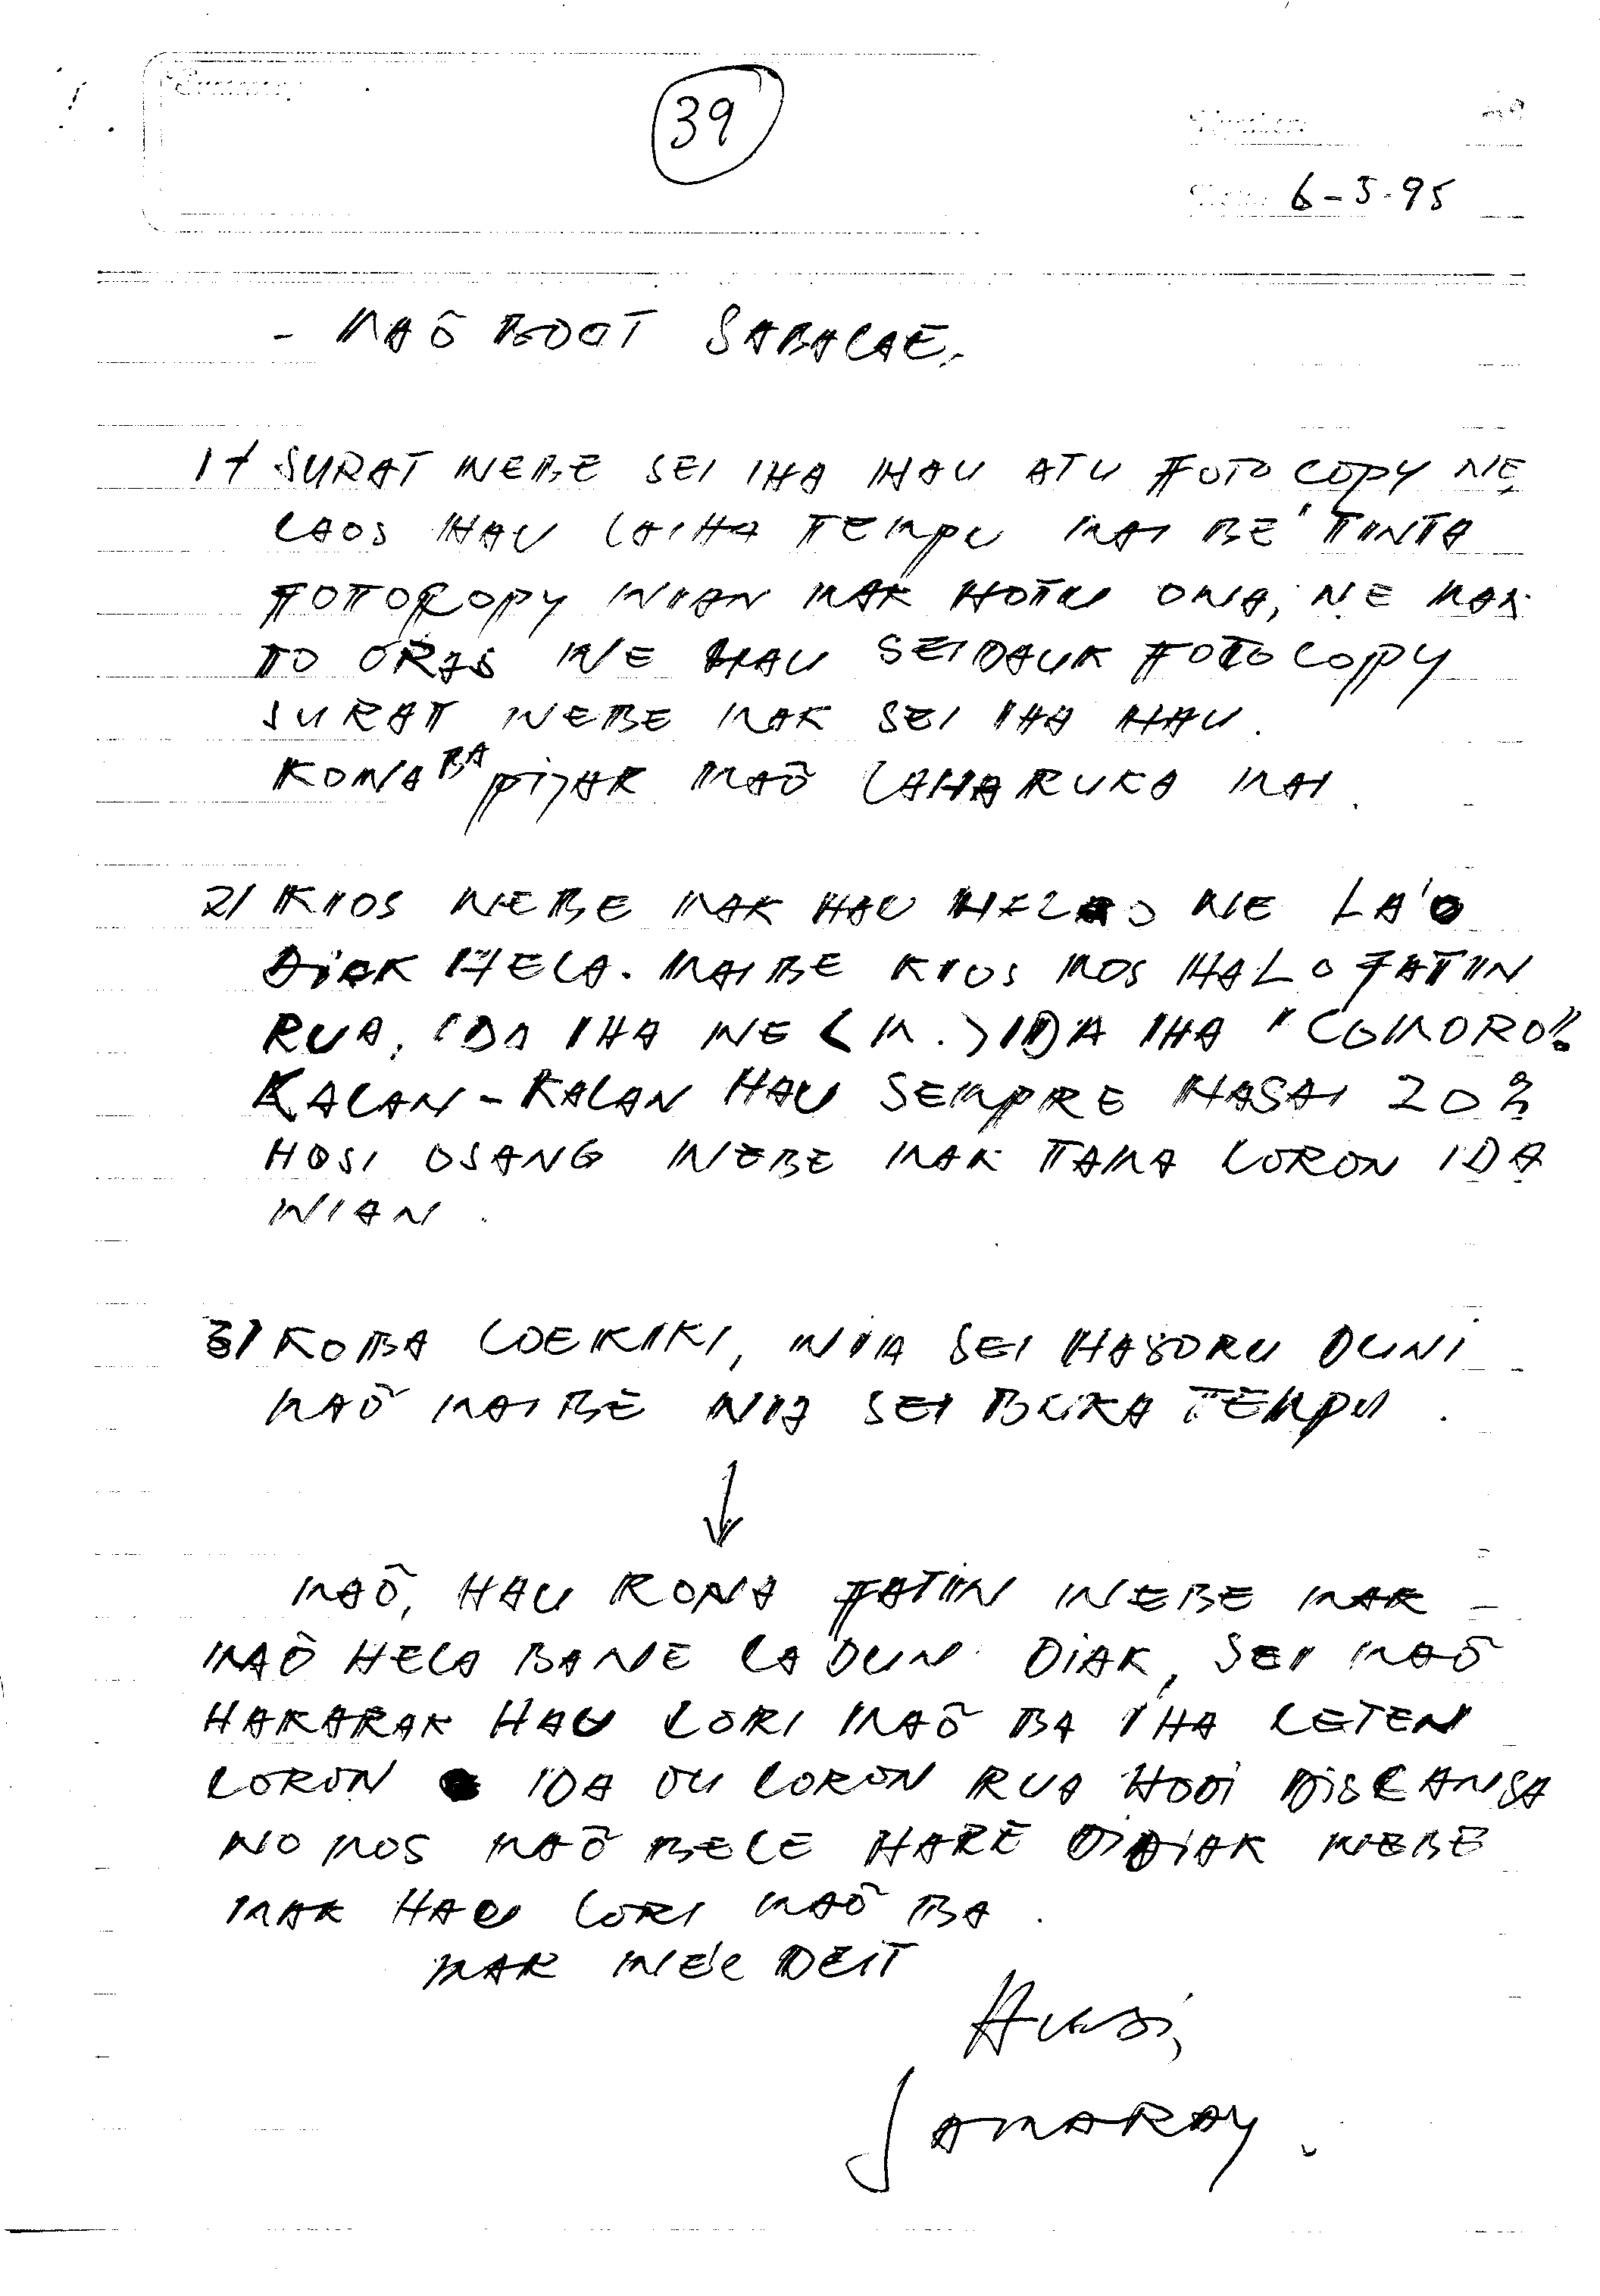 39
6-5-95
- MAÕ BOOT SABALAE,
1/ SURAT NEBE SEI IHA HAU ATU FOTO COPY NE
LAOS HAU LAIHA TEMPU MAI BE' TINTA
FOTOCOPY NIAN MAK HOTU ONA, NE MAK
TO ORAS NE HAU SEIDAUK FOTO COPY
SURAT NEBE MAK SEI IHA HAU.
KONA BA PIJAR MAÕ LAHARUKA MAI.
2/ KIOS NEBE MAK HAU NE LA'O
DIAK HELA. MAIBE KIOS MOS HALO FATIN
RUA, IDA IHA NE < M. > IDA IHA "COMORO".
KALAN-KALAN HAU SEMPRE HASAI 20%
HOSI OSANG NEBE MAK TAMA LORON IDA
NIAN.
3/ KOBA LOERIKI, NIA SEI HASORU DUNI
MAÕ MAIBE NIA SEI BUKA TEMPU.
↓
MAÕ, HAU RONA FATIN NEBE MAK
MAÕ HELA BA NE LA DUN DIAK, SEI MAÕ
HAKARAK HAU LORI MAÕ BA IHA LETEN
LORON IDA OU LORON RUA HODI DISCANSA
NO MOS MAÕ BELE HARE DIDIAK NEBE
MAK HAU LORI MAÕ BA.
MAK NE'E DEIT
Husi,
SAMARAY.